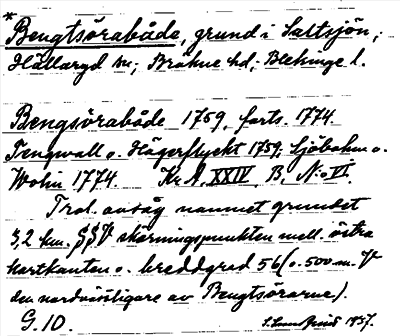 *
Bengtsörabåde, grund i Saltsjön,
Hällaryd sn; Bräkne hd; Blekinge l.
Bengsöråbåde 1759, forts. 1774.
Tengwall o. Hägerflyckt 1759, Sjöbohm o.
Wohn 1774. Kr. A. XXIV, B, N:o VI.
Trol. avsåg namnet grundet
3,2 km. SSV skärningspunkten mell. östra
kartkanten o. breddgrad 56 (o. 500 m. V
den nordvästligare av Bengtsörarne).
G.10. 1937.